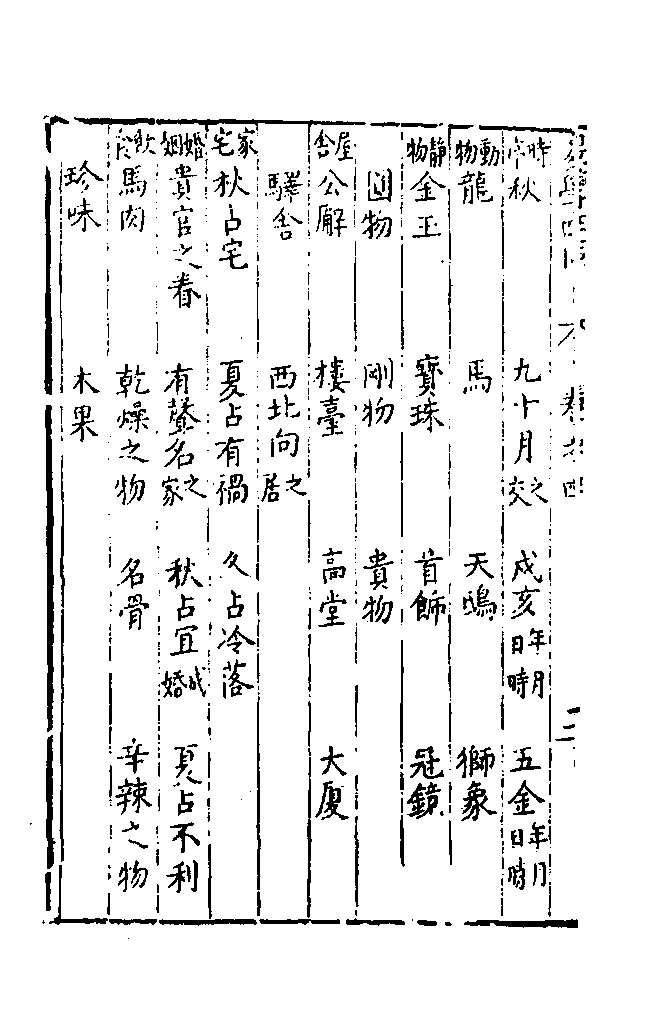 時序秋　九十月之交　戌亥年月日時　五金年月日時
動物龍　馬　天鵝　獅象
靜物金玉　寶珠　首飾　冠鏡
圓物　剛物　貴物
屋舍公廨　樓臺　高堂　大廈
驛舍　西北向之居
家宅秋占宅　夏占有禍　冬占冷落
婚姻貴官之眷　有聲名之家　秋占宜成婚　夏占不利
飲食馬肉　乾燥之物　名骨　辛辣之物
珍味　木果